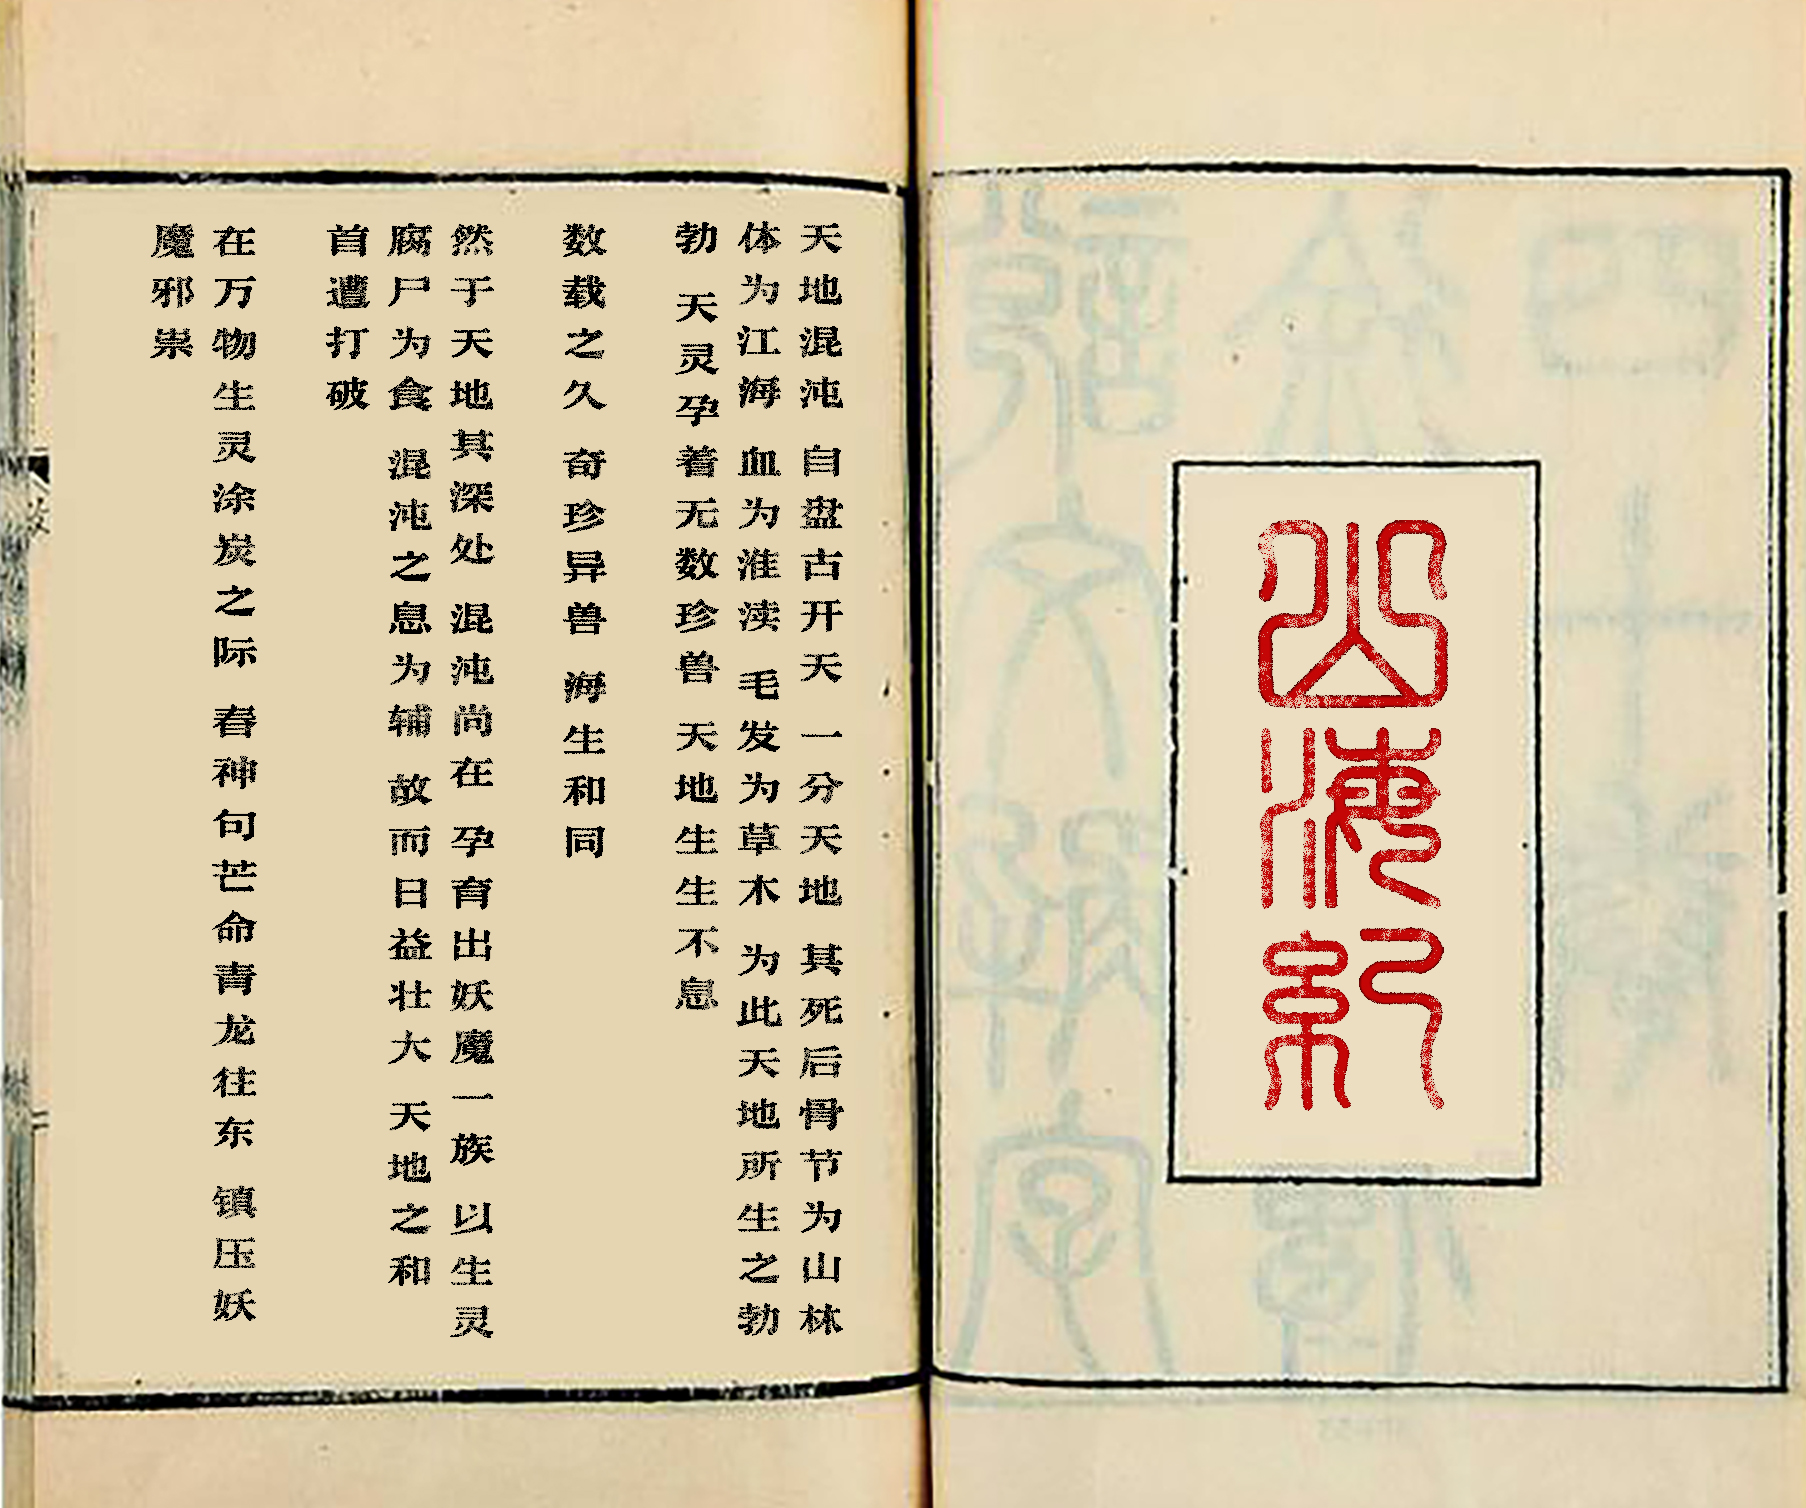 山海纪
天地混沌 自盘古开天 一分天地 其死后骨节为山林
体为江海 血为淮渎 毛发为草木 为此天地所生之勃
勃 天灵孕着无数珍兽 天地生生不息
数载之久 奇珍异兽 海生和同
然于天地其深处 混沌尚在 孕育出妖魔一族 以生灵
腐尸为食 混沌之息为辅 故而日益壮大 天地之和
首遭打破
在万物生灵涂炭之际 春神句芒命青龙往东 镇压妖
魔邪祟